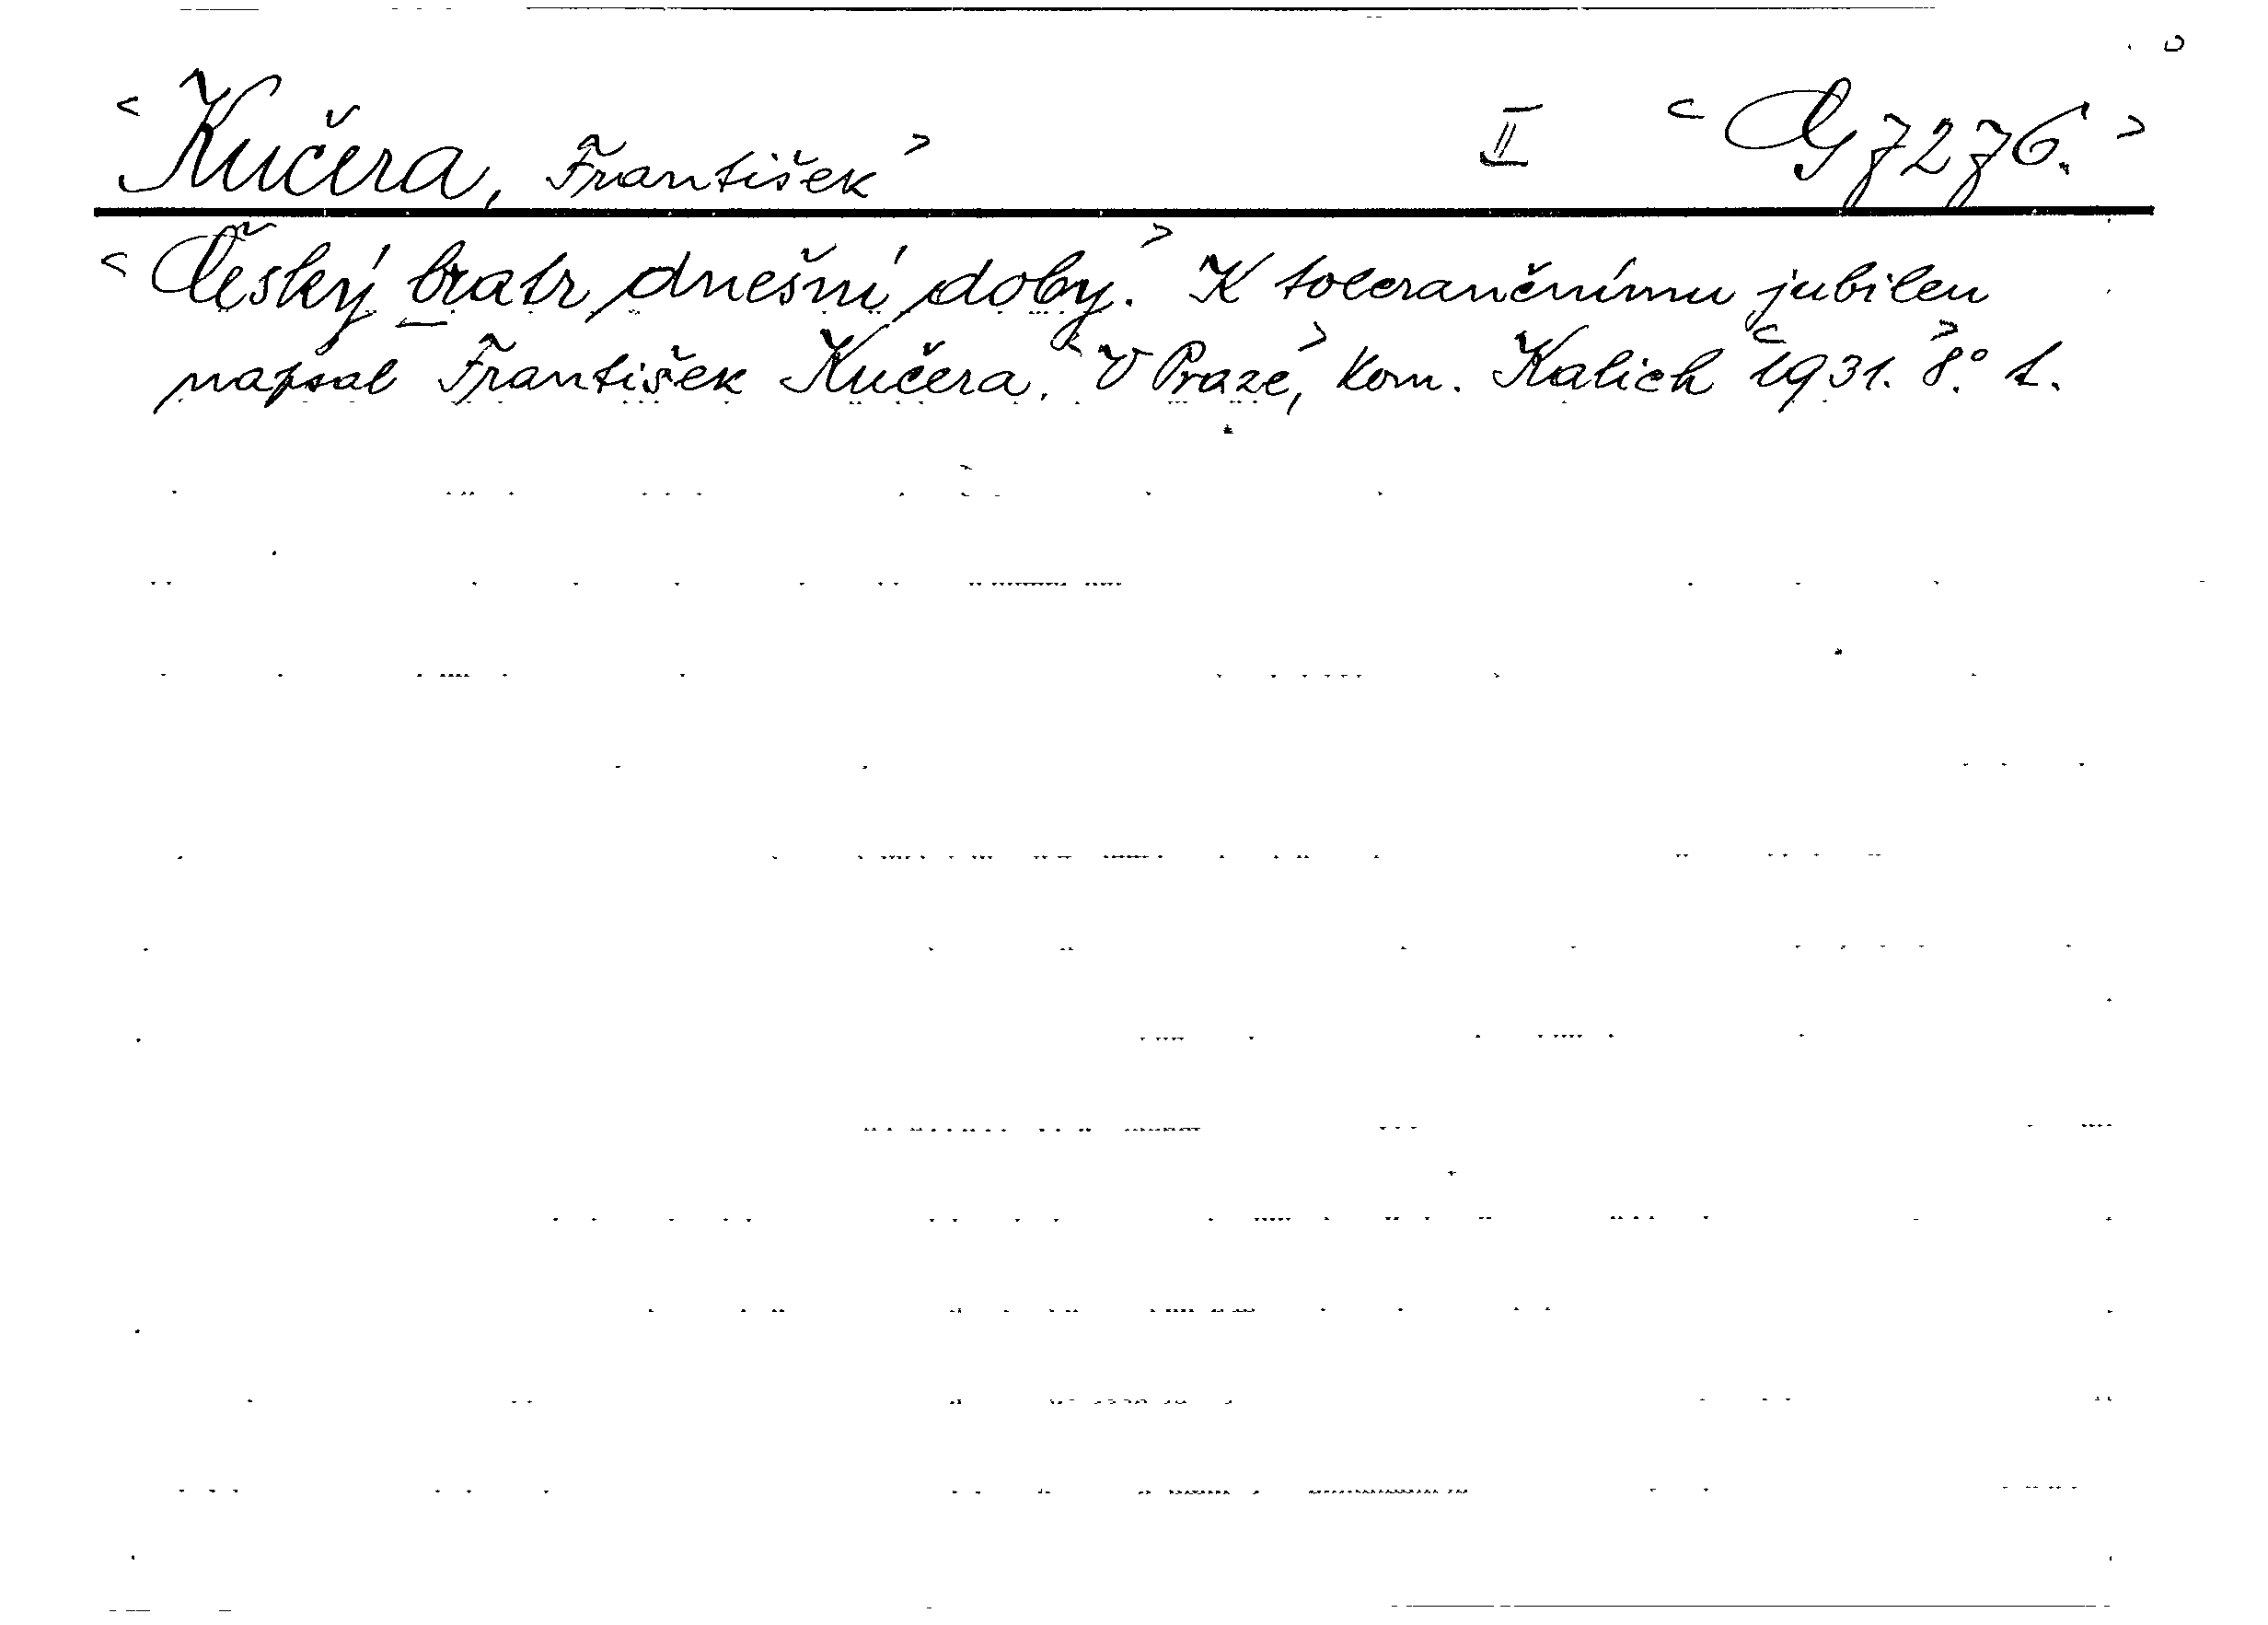 <Kučera, František> II <G 7276.>
<Český bratr dnešní doby.> K tolerančnímu jubileu
napsal František Kučera. <V Praze,> kom. Kalich <1931.> 8.° 1.